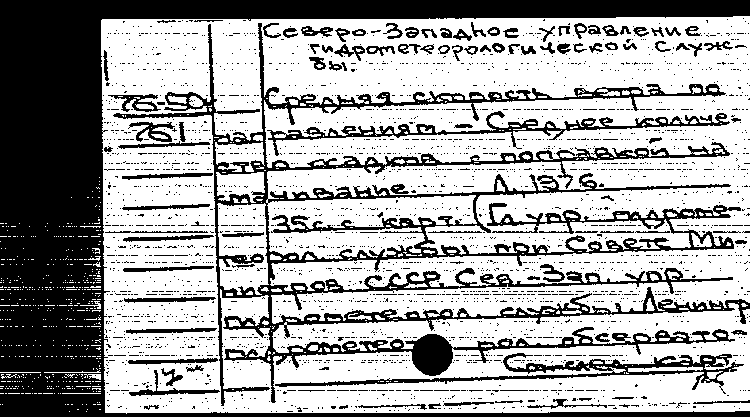 Северо-Западное управление
гидрометеорологической служ-
бы.
76-50-
761
Средняя скорость ветра по
направлениям. - Среднее количе-
ство осадков с поправкой на
смачивание. Л., 1976.
35с. с карт. (Гл. упр. гидроме-
теорол. службы при Совете Ми-
нистров СССР. Сев.-Зап. упр.
гидрометеорол. службы. Ленингр
гидрометео рол. обсервато-
карт.